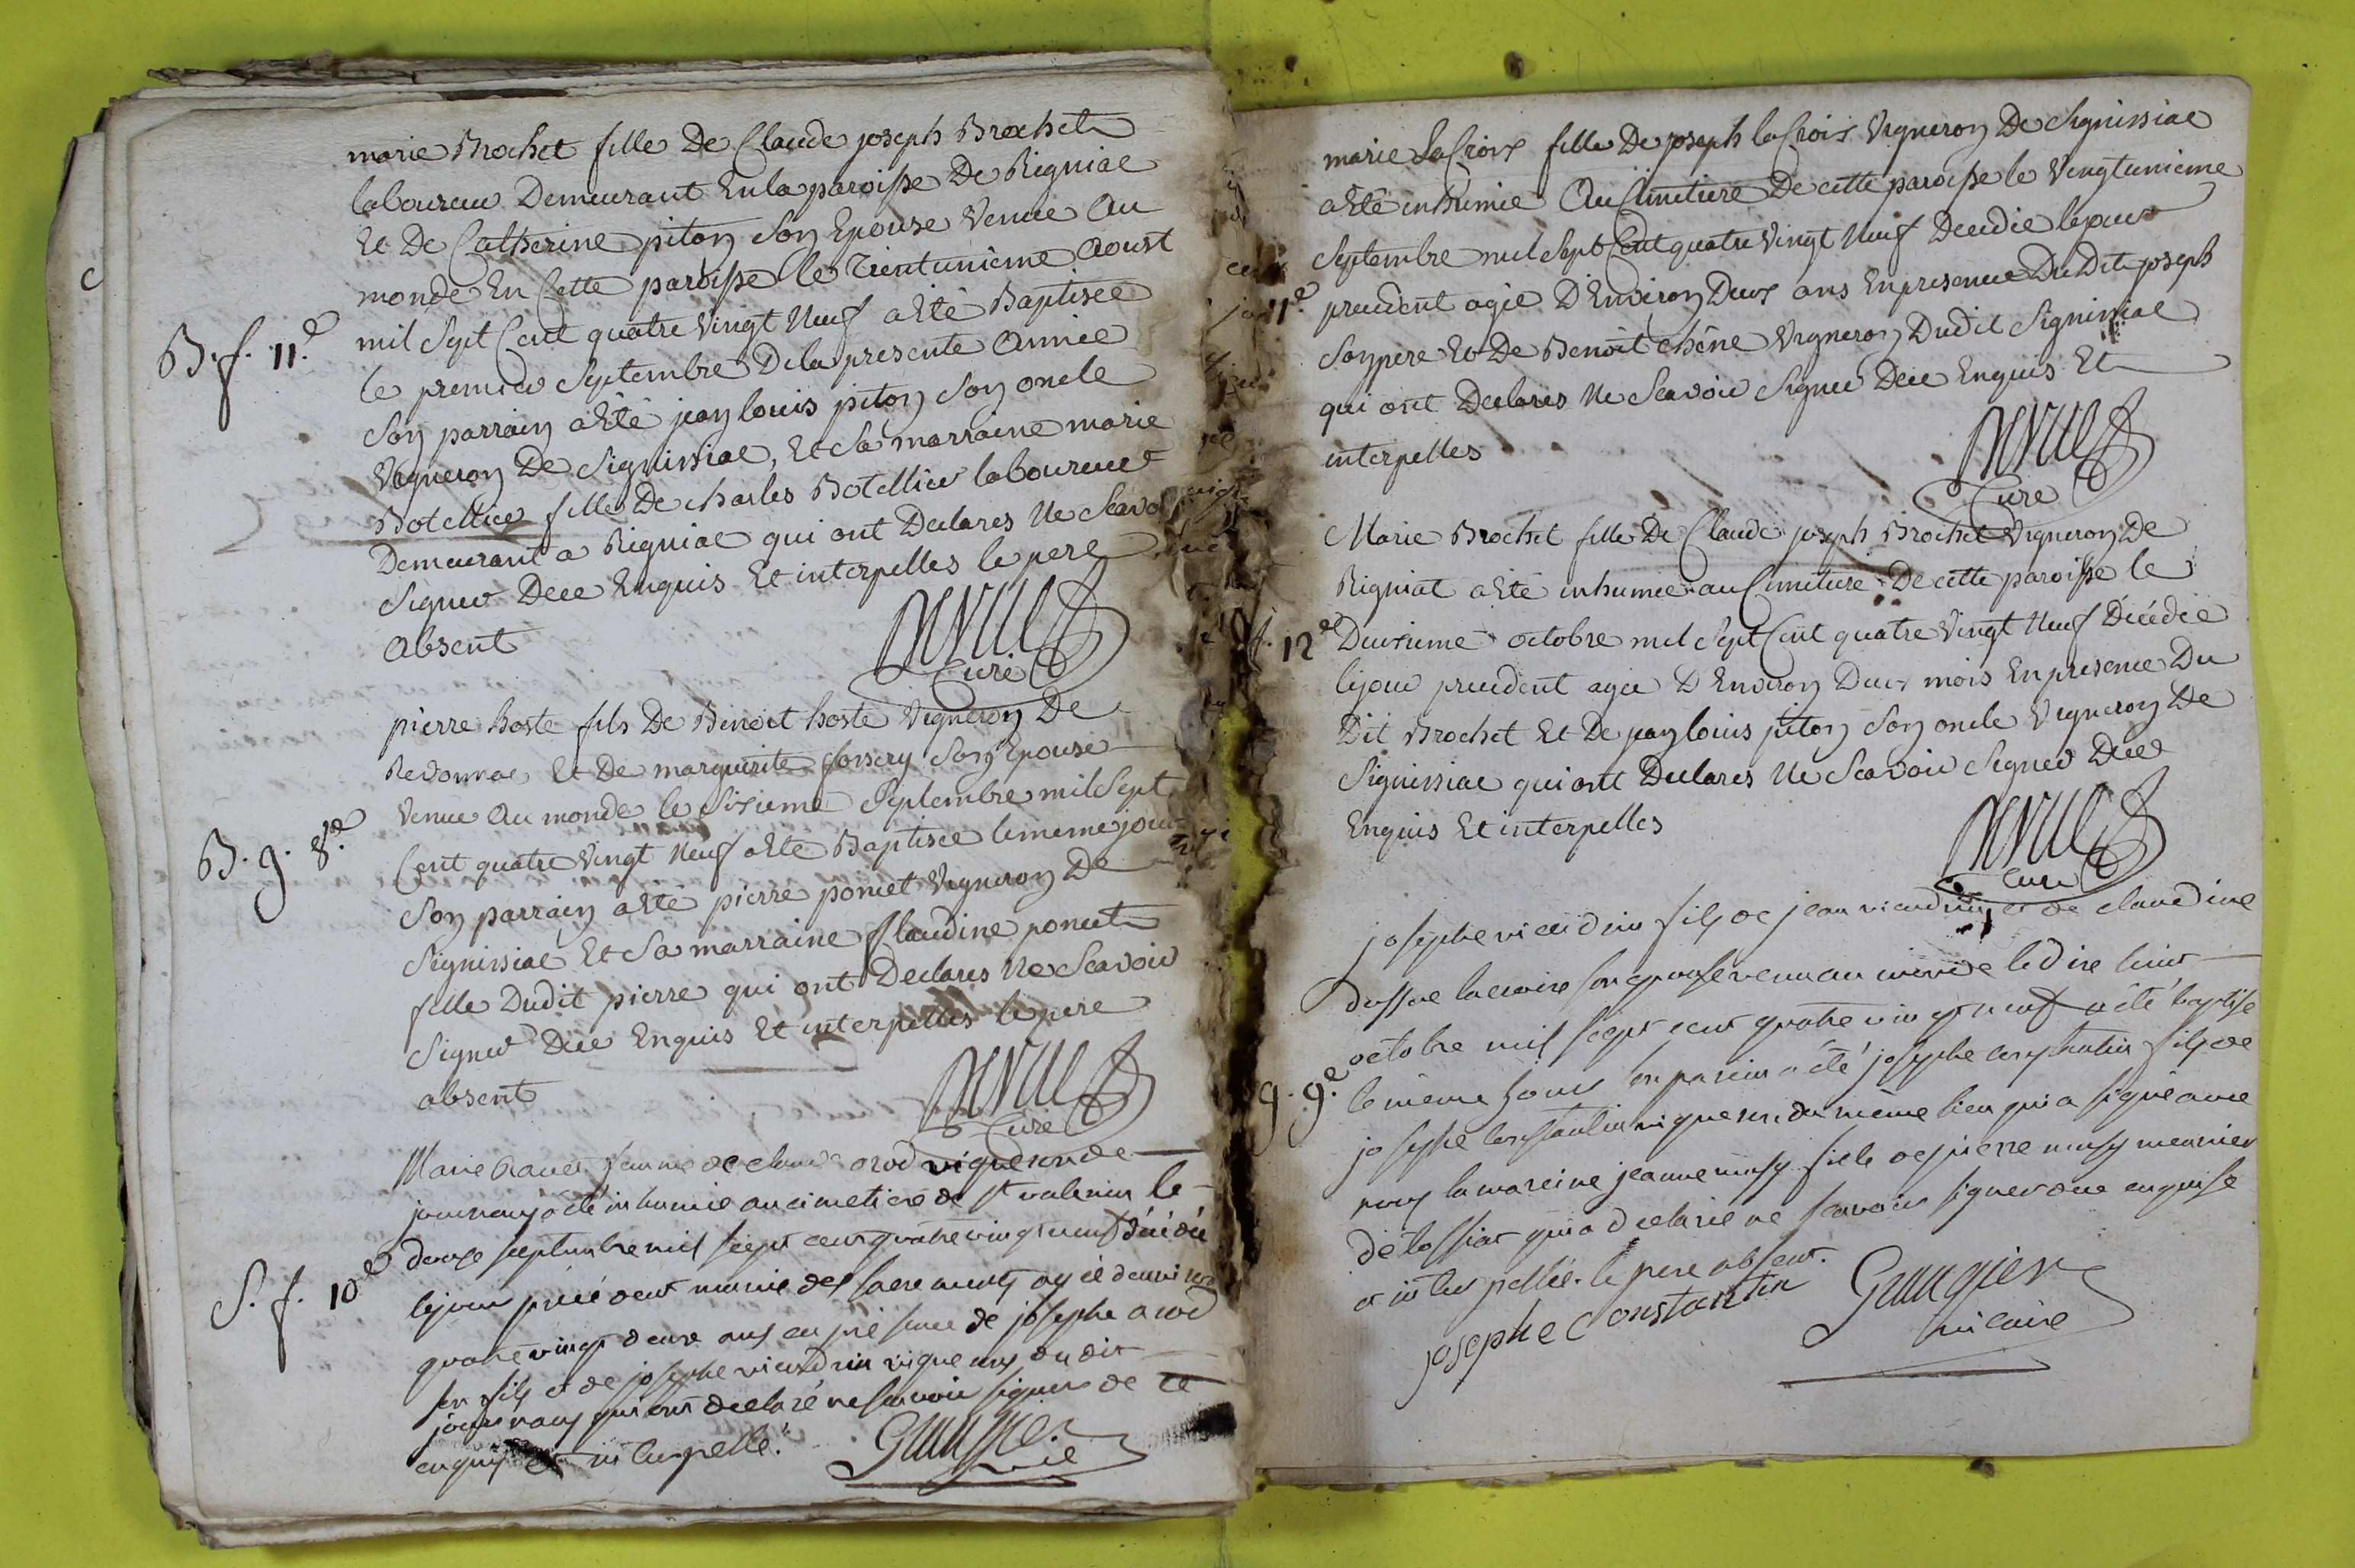 marie Brochet fille De Claude joseph Brochet
laboureur Demeurant En la paroisse De Rigniac
Et De Catherine piton Son Epouse Venue Au
monde En Cette paroisse le Trentunieme Aoust
B. f. 11.e
mil Sept Cent quatre Vingt Neuf a Eté Baptisée
le premier Septembre De la presente Année
Son parrain a Eté jean louis piton Son oncle
Vigneron De Signissiac, Et Sa marraine marie
Botellier fille De charles Botellier laboureur
Demeurant a Rigniac qui ont Declarés Ne Scavo
Signer Dece Enquis Et interpelles le pere
Absent
Curé
pierre hoste fils De Benoit hoste Vigneron De
Redonnac Et De marguerite Son Epouse
Venue Au monde le Sixieme Septembre mil Sept
B. g. 8.e
Cent quatre Vingt Neuf a Eté Baptisée le meme jour
Son parrain a Eté pierre poncet Vigneron De
Signissiac Et Sa marraine Claudine poncet
fille Dudit pierre qui ont Declares Ne Scavoir
Signer Dece Enquis Et interpelles le pere
absent
Curé
Marie femme de claude arod vigneron de
journans a été inhumée au cimetiere de st valerin le
douze septembre mil sept cent quatre vingt neuf décédée
S. f. 10e
le jour précédent munie des sacrements agée denviron
quatre vingt deux ans en présence de josephe arod
son fils et de josephe vieudrin vignerons du dit
journans qui ont declaré ne savoir signer de ce
enquis et interpellé.
vic
marie LaCroix fille De joseph laCroix Vigneron De Signissiac
a Eté inhumée Au Cimetiere De cette paroisse le Vingtunieme
Septembre mil Sept Cent quatre Vingt Neuf Decedée le jour
11e
precedent agée D Environ Deux ans En presence Du Dit joseph
Son pere Et De Benoit chêne Vigneron Dudit Signissiac
qui ont Declarés Ne Scavoir Signer Dece Enquis Et
interpelles
Cure
Marie Brochet fille De Claude joseph Brochet Vigneron De
Rigniat a Eté inhumée au Cimetiere De cette paroisse le
f. 12e
Deuxieme octobre mil Sept Cent quatre Vingt Neuf Décédée
le jour precedent agée D Environ Deux mois En presence Du
Dit Brochet Et De jean louis piton Son oncle Vigneron De
Signissiac qui ont Declares Ne Scavoir Signer Dece
Enquis Et interpelles
Curé
josephe vieudrin fils de jean vieudrin et de claudine
lacroix son epouse venu au monde le dix huit
octobre mil sept cent quatre vingt neuf a été baptisé
g. 9.e
le même jour son parrein a été josephe constantin fils de
josephe constantin vigneron du même lieu qui a signé avec
nous la mareine jeanne musy fille de pierre musy meunier
de tossiat qui a declaré ne savoir signer de ce enquise
et interpellée. le pere absent.
josephe Constantin
vicaire